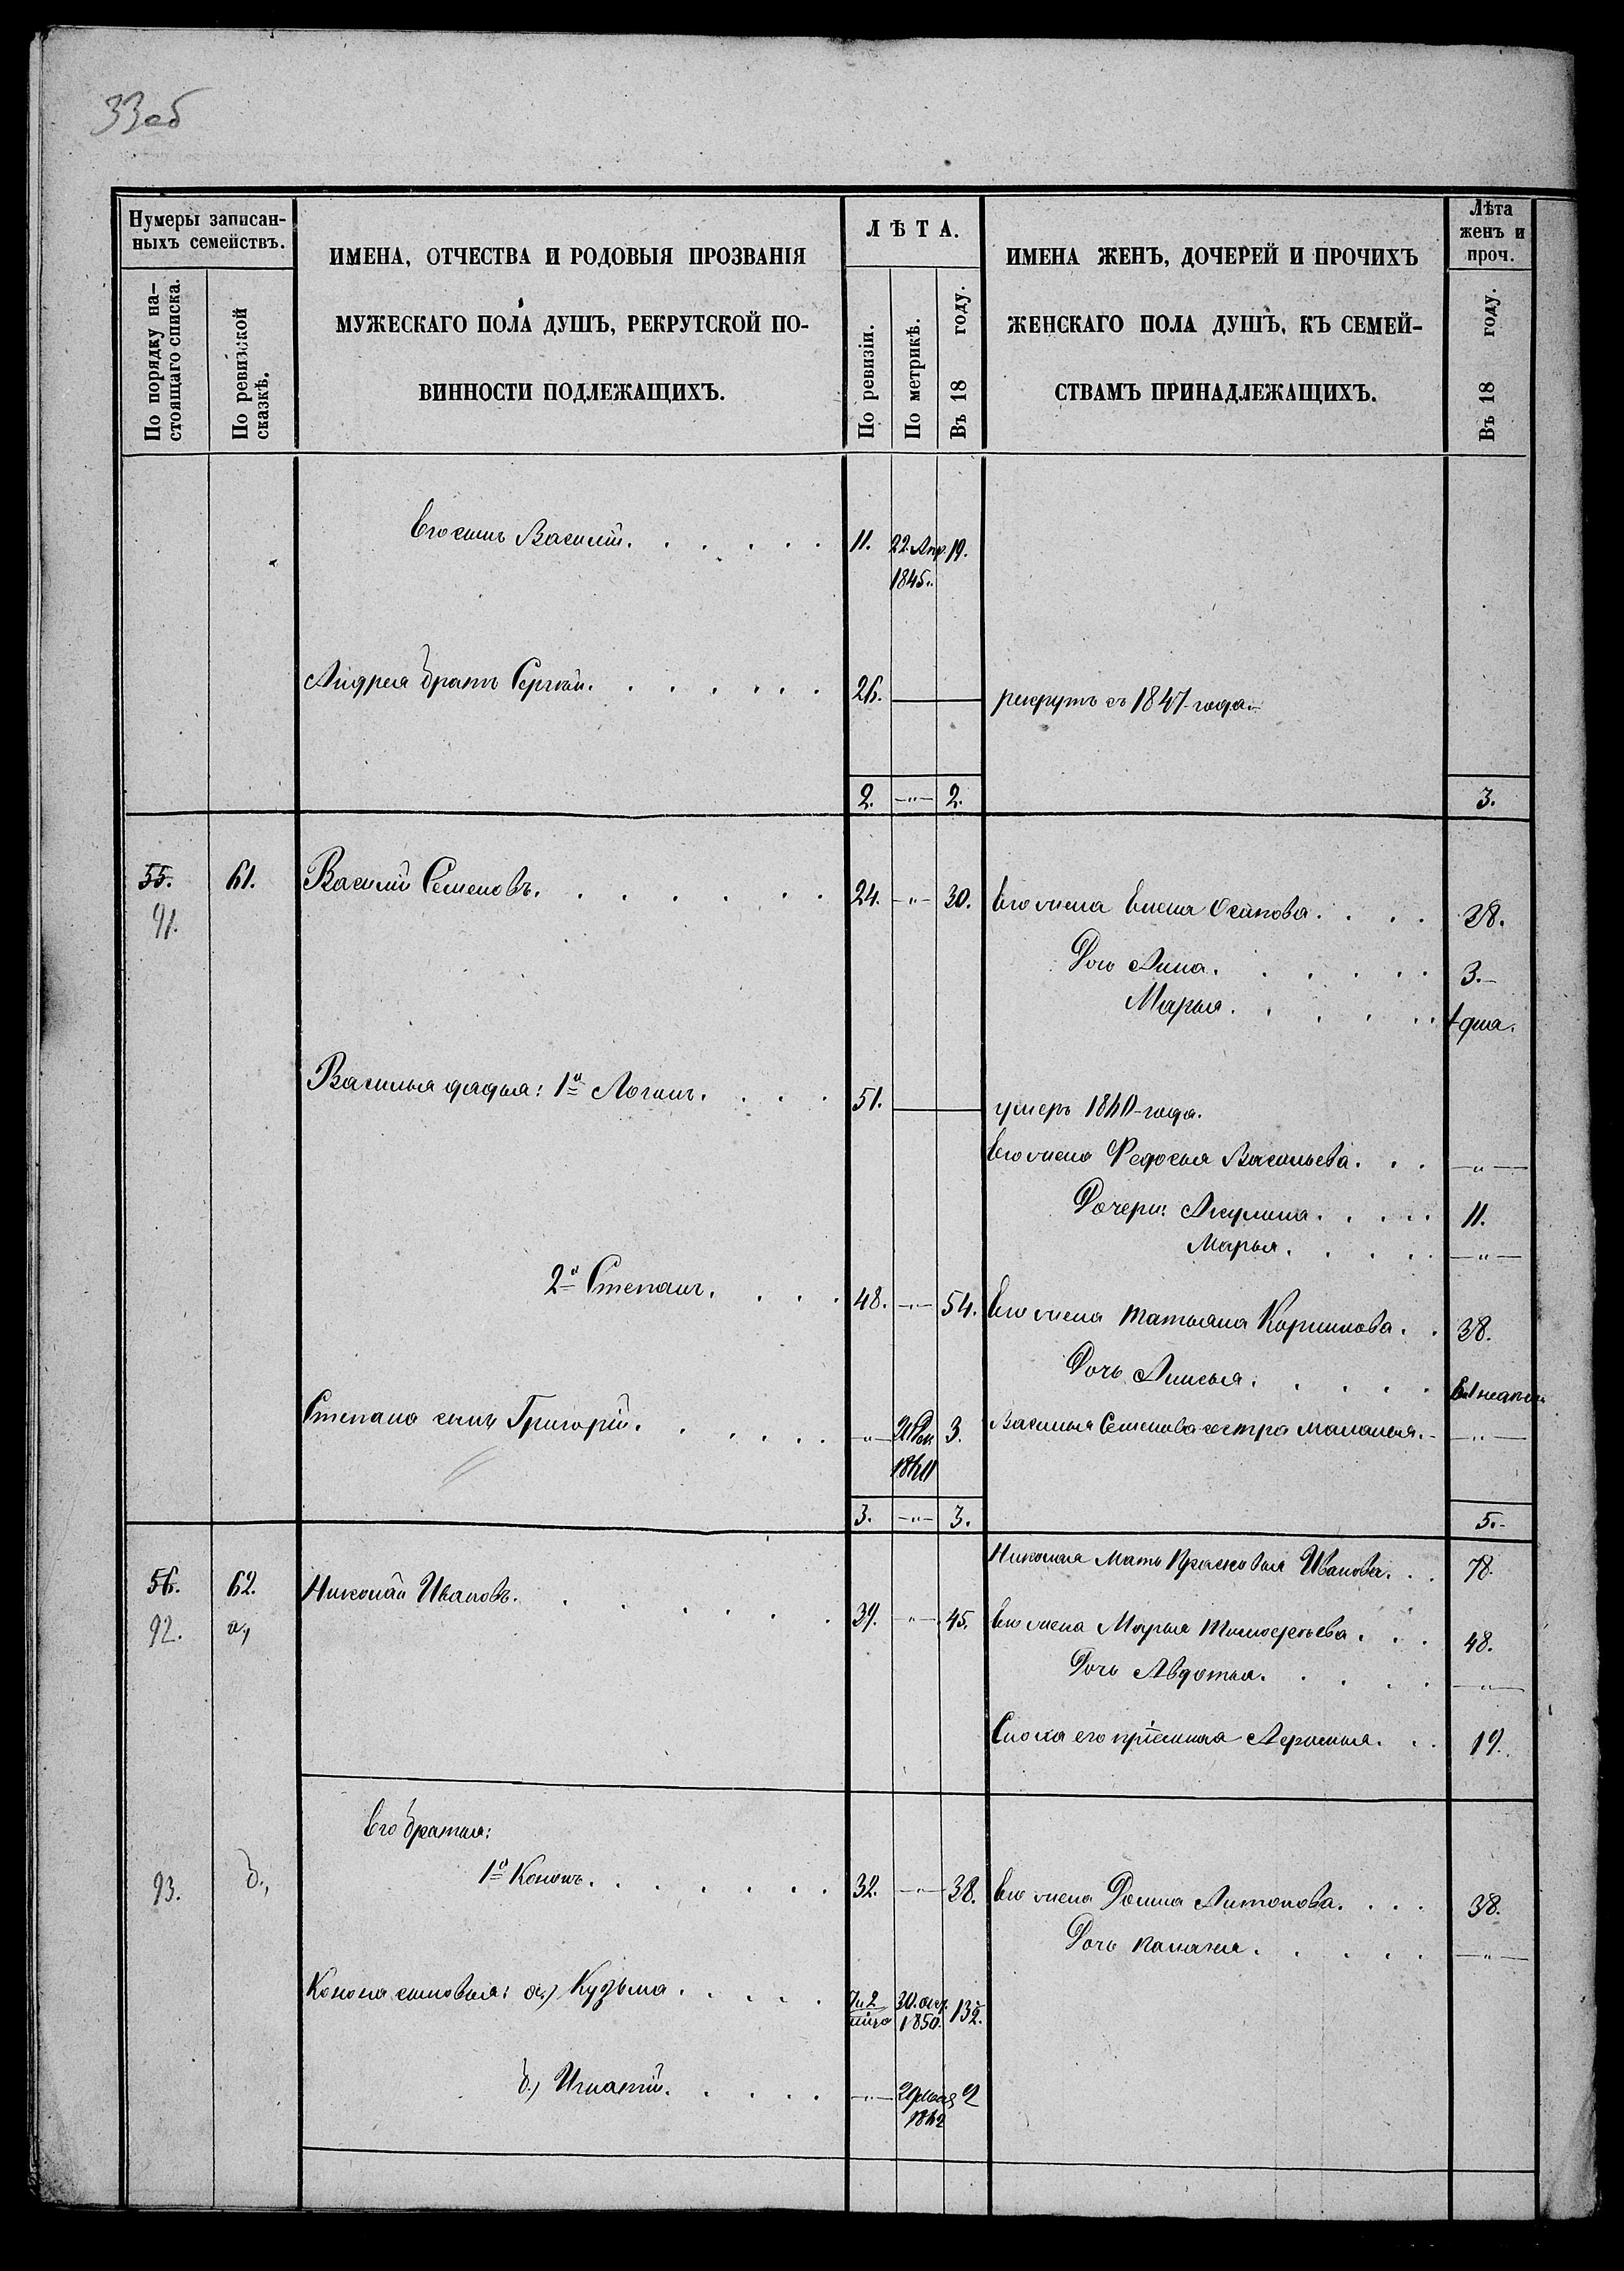 33об
Нумеры записан-
ныхъ семействъ.
По порядку на-
стоящаго списка.
По ревизской
сказкѣ.
ИМЕНА, ОТЧЕСТВА И РОДОВЫЯ ПРОЗВАНІЯ
МУЖЕСКАГО ПОЛА ДУШЪ, РЕКРУТСКОЙ ПО-
ВИННОСТИ ПОДЛЕЖАЩИХЪ.
ЛѢТА.
По ревизіи.
По метрикѣ.
Въ 18 году.
ИМЕНА ЖЕНЪ, ДОЧЕРЕЙ И ПРОЧИХЪ
ЖЕНСКАГО ПОЛА ДУШЪ, КЪ СЕМЕЙ-
СТВАМЪ ПРИНАДЛЕЖАЩИХЪ.
Лѣта
женъ и
проч.
Въ 18 году.
Его сынъ Василій. 11. 22. Апр. 19.
1845.
Андрея братъ Сергѣй. 26. рекрутъ съ 1847 года.
2. -„- 2. 3.
55. 61. Василій Семеновъ. 24. -„- 30. Его жена Елена Осипова. 38.
91.
Дочь Анна. 3.
Марья.
Василья дядья: 1й Логинъ. 51. умеръ 1860 года.
Его жена Федосья Васильева. -„-
Дочери: Акулина. 11.
Марья. -„-
2й Степанъ. 48. -„- 54. Его жена Татьяна 38.
Дочь Анисья.
Степана сынъ Григорій. -„- 3. Василья Семенова сестра Маланья. -„-
1860
3. -„- 3. 5.
Николая Мать Прасковья Иванова. 78.
56. 62. Николай Ивановъ. 39. -„- 45. Его жена Марья Тимофеева. 48.
92. а,
Дочь Авдотья. -„-
Сноха его пріемная 19.
Его братья:
93. б., 1й Кононъ. 32. -„- 38. Его жена Домна Антонова. 38.
Дочь Палагея. -„-
Конона сыновья: а,) Кузьма. 30. окт. 13½.
1850.
б,) Игнатій. -„- 29 мая 2
1862